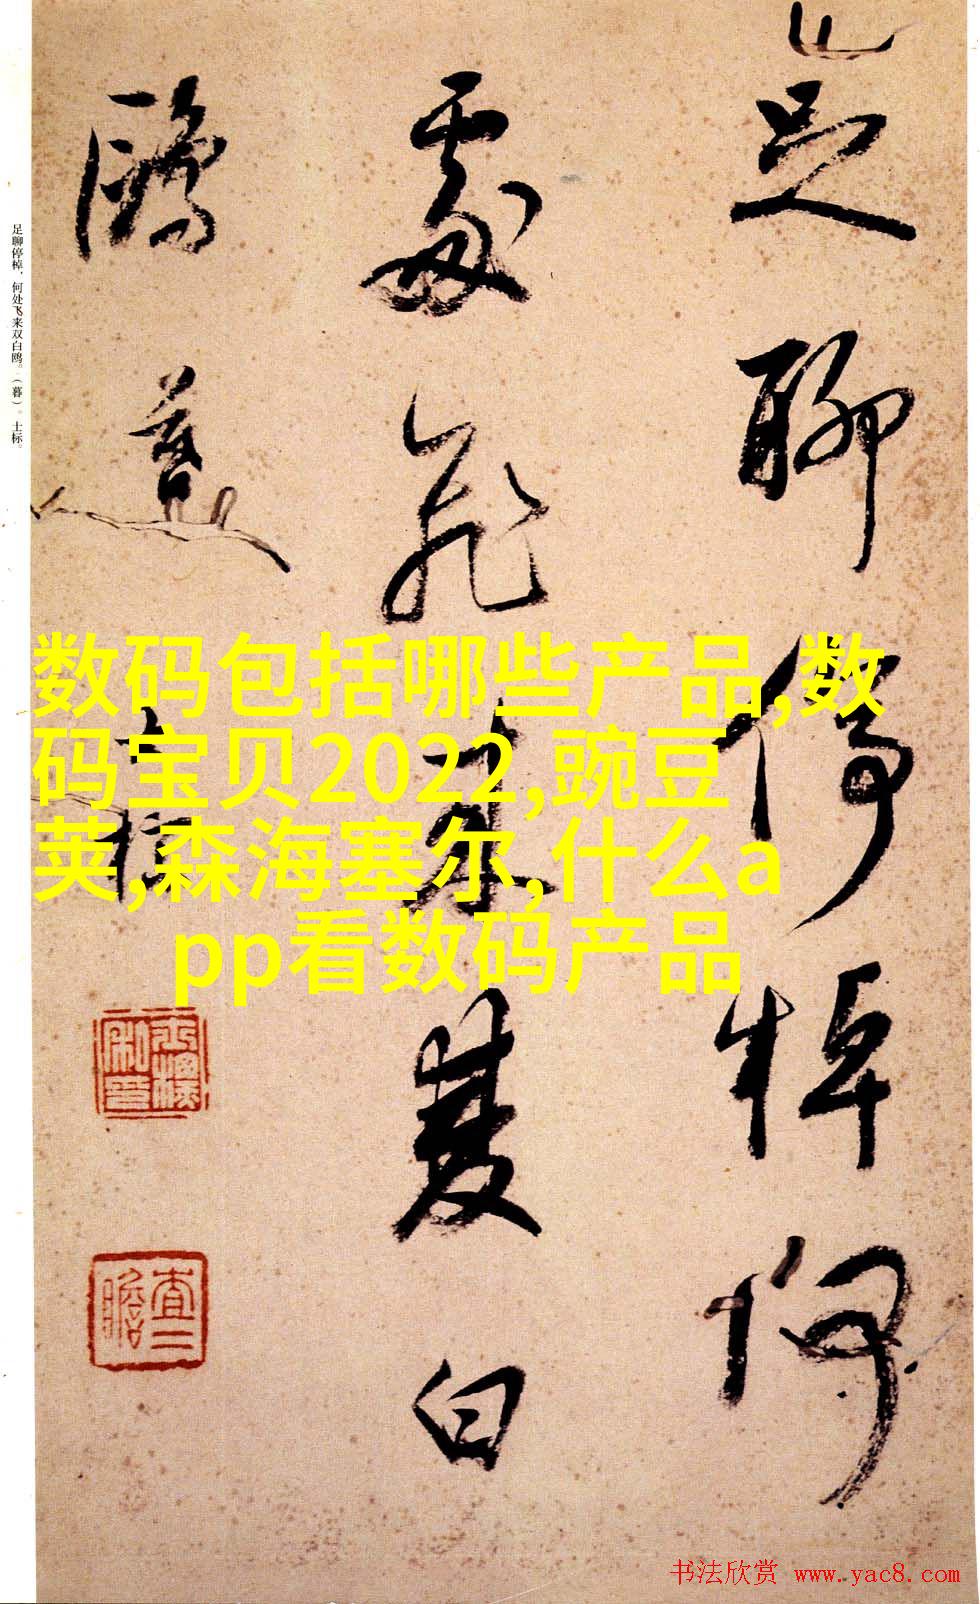 足聊停棹何
處飛来雙白
鷗暮士標
足聊停棹，何处飞来双白鸥。（暮）。士标。
数码包括哪些产品,数
码宝贝2022,豌豆
荚,森海塞尔,什么a
pp看数码产品
士標私印
查二瞻
书法欣赏 www.yac8.com